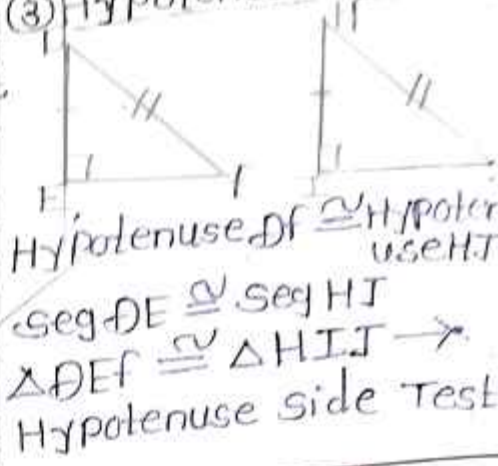 (3)
H
Hypotenuse Df ≅ Hypoten
use HJ
seg DE ≅ seg HI
△DEf ≅ △HIJ →
Hypotenuse side Test